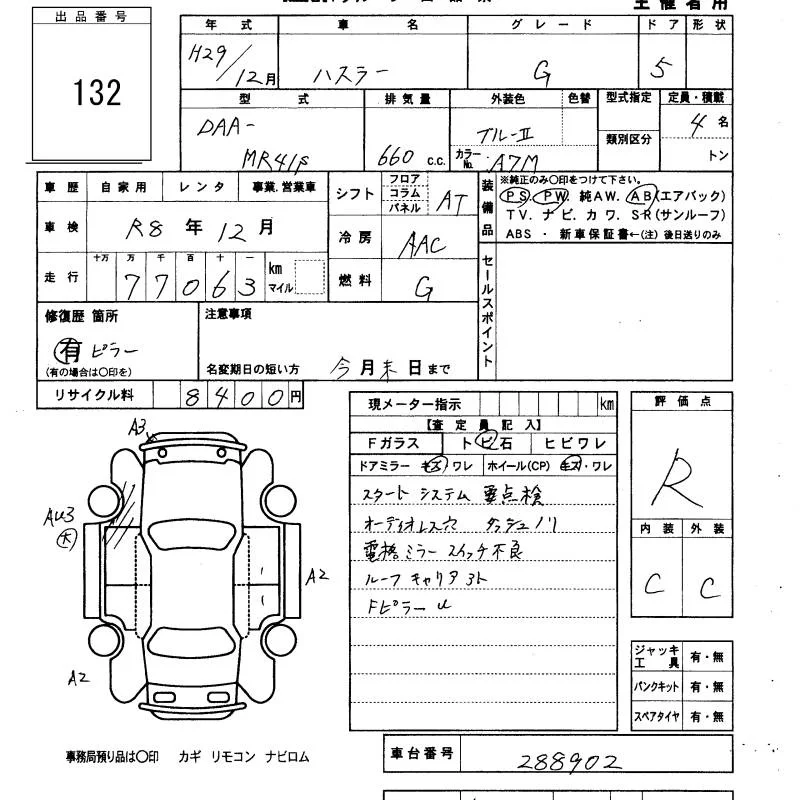 出品番号
132
主催者用
年式 車名 グレード ドア 形状
H29/12月 ハスラー G 5
型式 排気量 外装色 色替 型式指定 定員・積載
DAA-
MR41S 660 c.c. ブルーⅡ 類別区分 4名
カラーNo. A7M トン
車歴 自家用 レンタ 事業.営業車
シフト フロア コラム パネル AT
装備品 ※純正のみ○印をつけて下さい。
PS. PW. 純AW. AB(エアバック)
TV. ナビ. カワ. S・R(サンルーフ)
ABS ・ 新車保証書←(注) 後日送りのみ
車検 R8年12月
冷房 AAC
走行 十万 万 千 百 十 一
77063 km マイル
燃料 G
セールスポイント
修復歴 箇所
有 ピラー
(有の場合は○印を)
注意事項
名変期日の短い方 今月末日まで
リサイクル料 8400円
現メーター指示 km
【査定員記入】
Fガラス トビ石 ヒビワレ
ドアミラー キズ・ワレ ホイール(CP) キズ・ワレ
スタートシステム要点検
オーディオレス穴 ダッシュノリ
電格ミラースイッチ不良
ルーフキャリアヨト
Fピラーu
評価点
R
内装 外装
C C
A3
AU3
大
A2
A2
ジャッキ工具 有・無
パンクキット 有・無
スペアタイヤ 有・無
事務局預り品は○印 カギ リモコン ナビロム
車台番号 288902